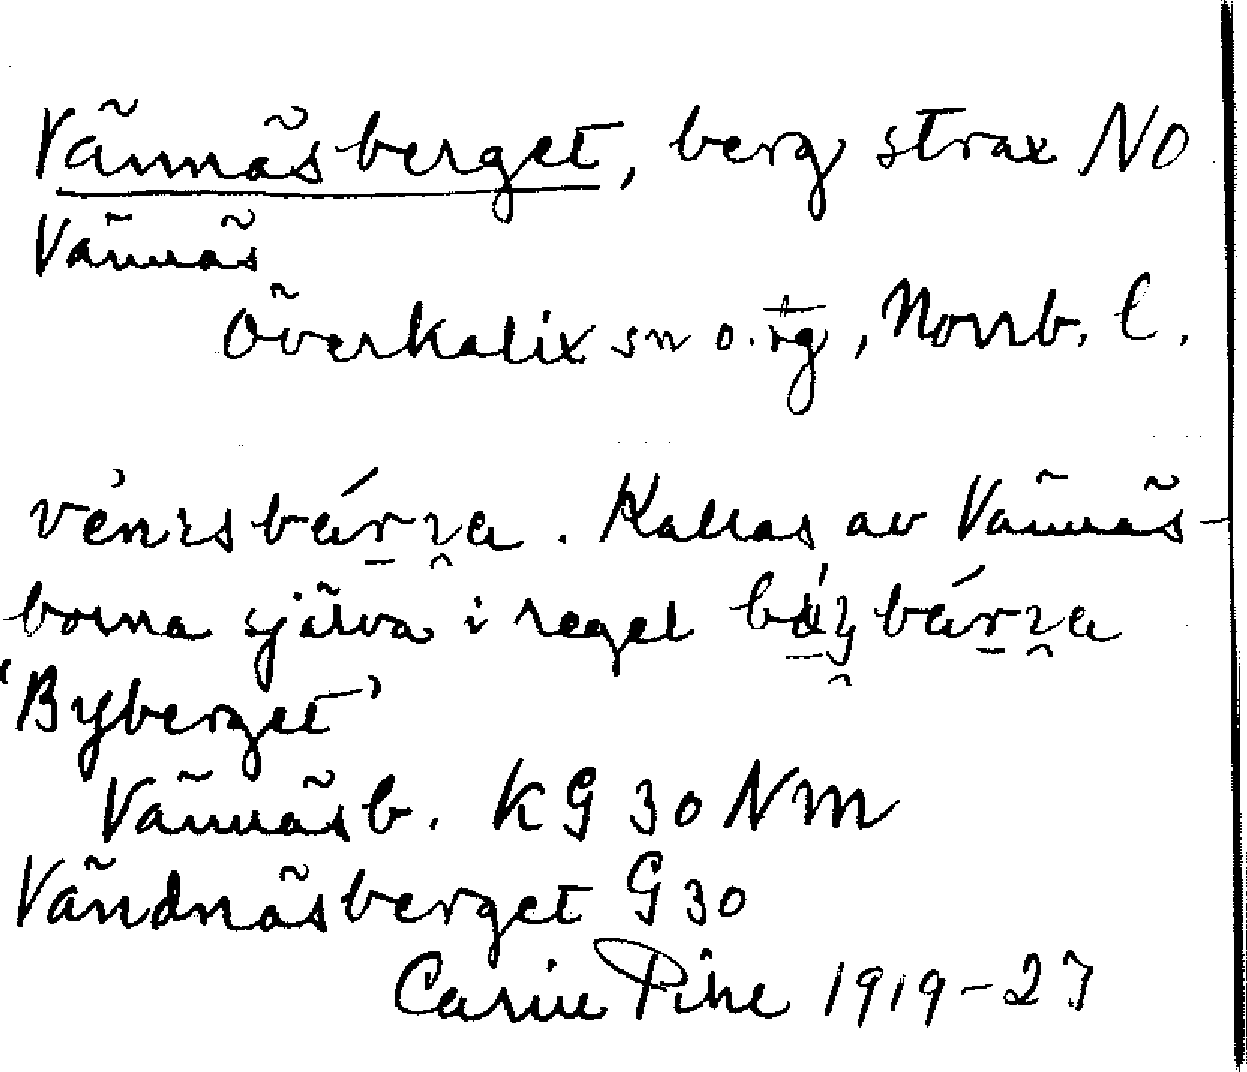 Vännäsberget, berg strax NO
Vännäs
Överkalix sn o. tg, Norrb. l.
Kallas av Vännäs-
borna själva i regel
'Byberget'
Vännäsb. KG 30 NM
Vändnäsberget G 30
Carin Pihl 1919-27